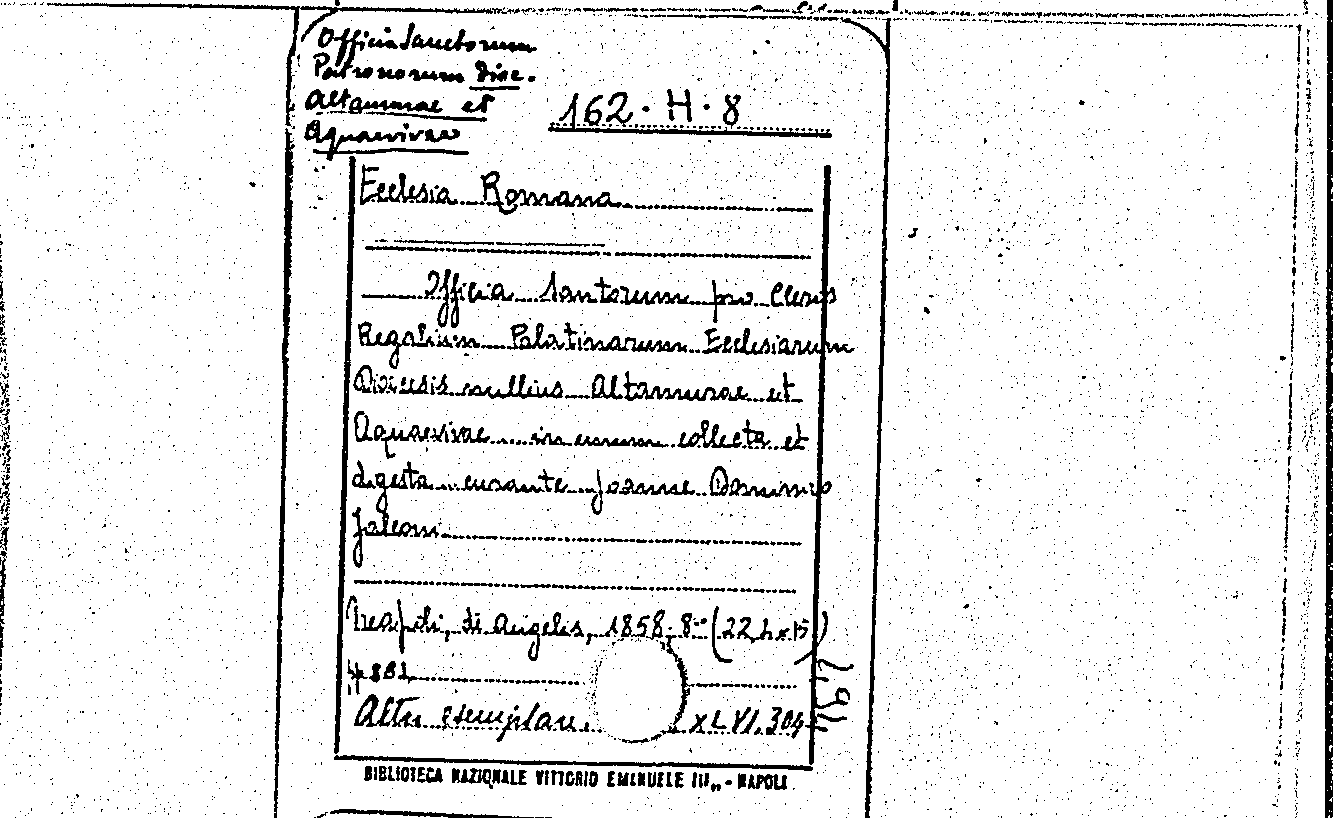 Officia Sanctorum
Patronorum dioc.
Altamurae et
Aquaevivae
162 · H · 8
Ecclesia Romana
Officia Santorum pro Cleris
Regalium Palatinarum Ecclesiarum
Diocesis nullius Altamurae et
Aquaevivae in unum collecta et
digesta curante Joanne Dominico
Falconi
Neapoli, De Angelis, 1858, 8°
Altri esemplari XLVI. 304
BIBLIOTECA NAZIONALE VITTORIO EMANUELE III„ - NAPOLI